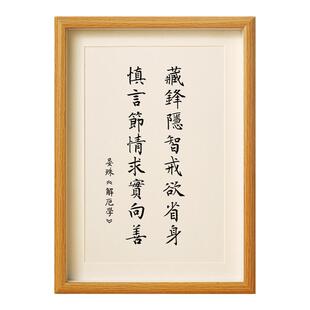 藏鋒隱智戒欲省身
慎言節情求實向善
晏殊《解厄學》